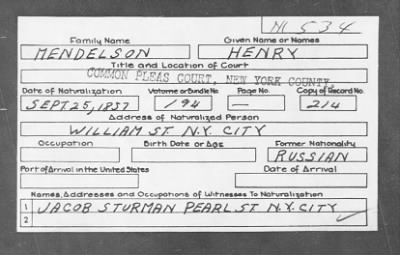 M 534
Family Name Given Name or Names
MENDELSON HENRY
Title and Location of Court
COMMON PLEAS COURT, NEW YORK COUNTY.
Date of Naturalization Volume or Bundle No. Page No. Copy of Record No.
SEPT. 25, 1837 194 — 214
Address of Naturalized Person
WILLIAM ST. N.Y. CITY
Occupation Birth Date or Age Former Nationality
RUSSIAN
Port of Arrival in the United States Date of Arrival
Names, Addresses and Occupations of Witnesses To Naturalization
1 JACOB STURMAN PEARL ST N.Y. CITY
2